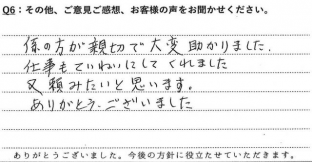 Q6：その他、ご意見ご感想、お客様の声をお聞かせください。
係の方が親切で大変助かりました.
仕事もていねいにして くれました
又頼みたいと思います。
ありがとう.ございました
ありがとうございました。今後の方針に役立たせていただきます。